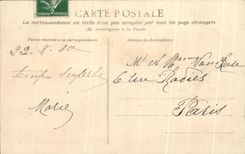 CARTE POSTALE
La correspondance au recto n'est pas acceptée par tous les pays étrangers
(Se renseigner à la Poste)
Partie réservée à la correspondance
Adresse du destinataire
22-8-10
Temps superbe
Marie
M. et Mme Van
6 rue
Paris